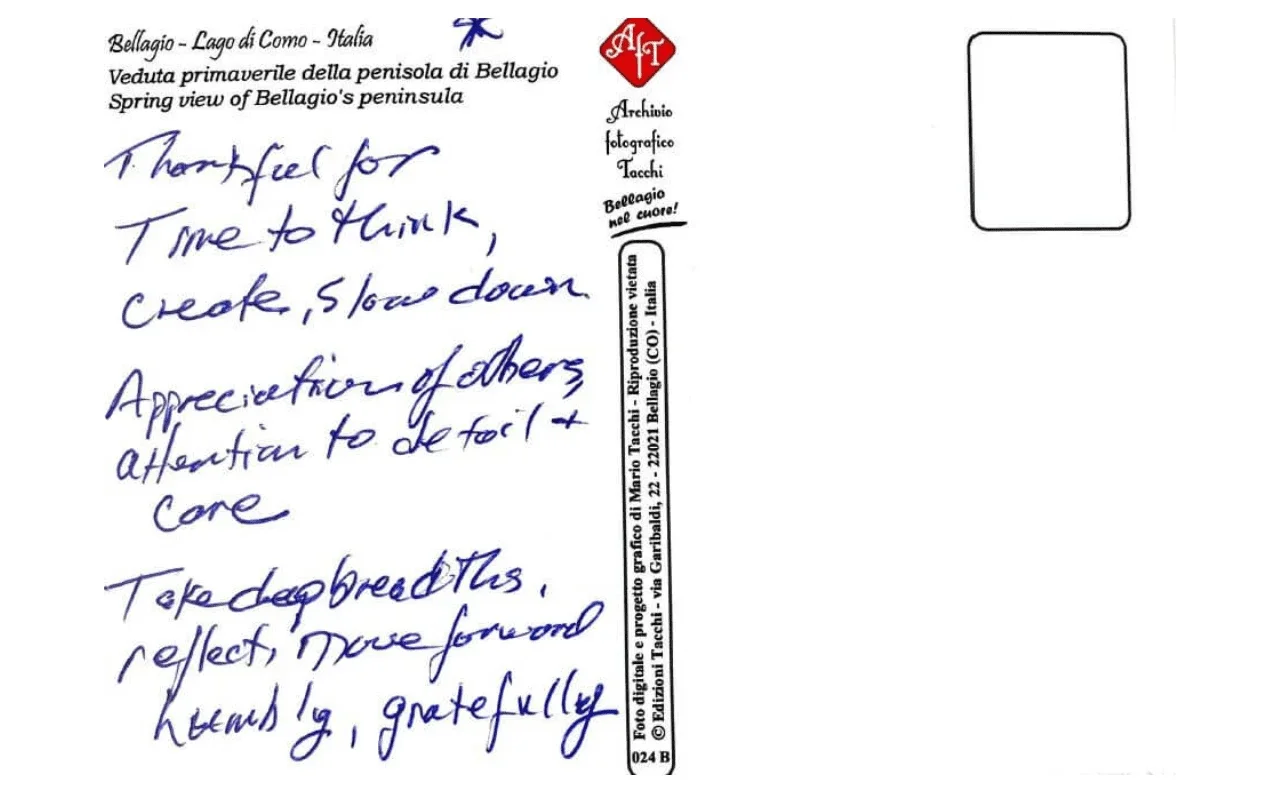 Bellagio - Lago di Como - Italia
Veduta primaverile della penisola di Bellagio
Spring view of Bellagio's peninsula
Thankful for
Time to think,
create, slow down
Appreciation of others,
attention to detail +
care
Take deep breadths,
reflect, move forward
humbly, gratefully
AfT
Archivio
fotografico
Tacchi
Bellagio
nel cuore!
Foto digitale e progetto grafico di Mario Tacchi - Riproduzione vietata
© Edizioni Tacchi - via Garibaldi, 22 - 22021 Bellagio (CO) - Italia
024 B